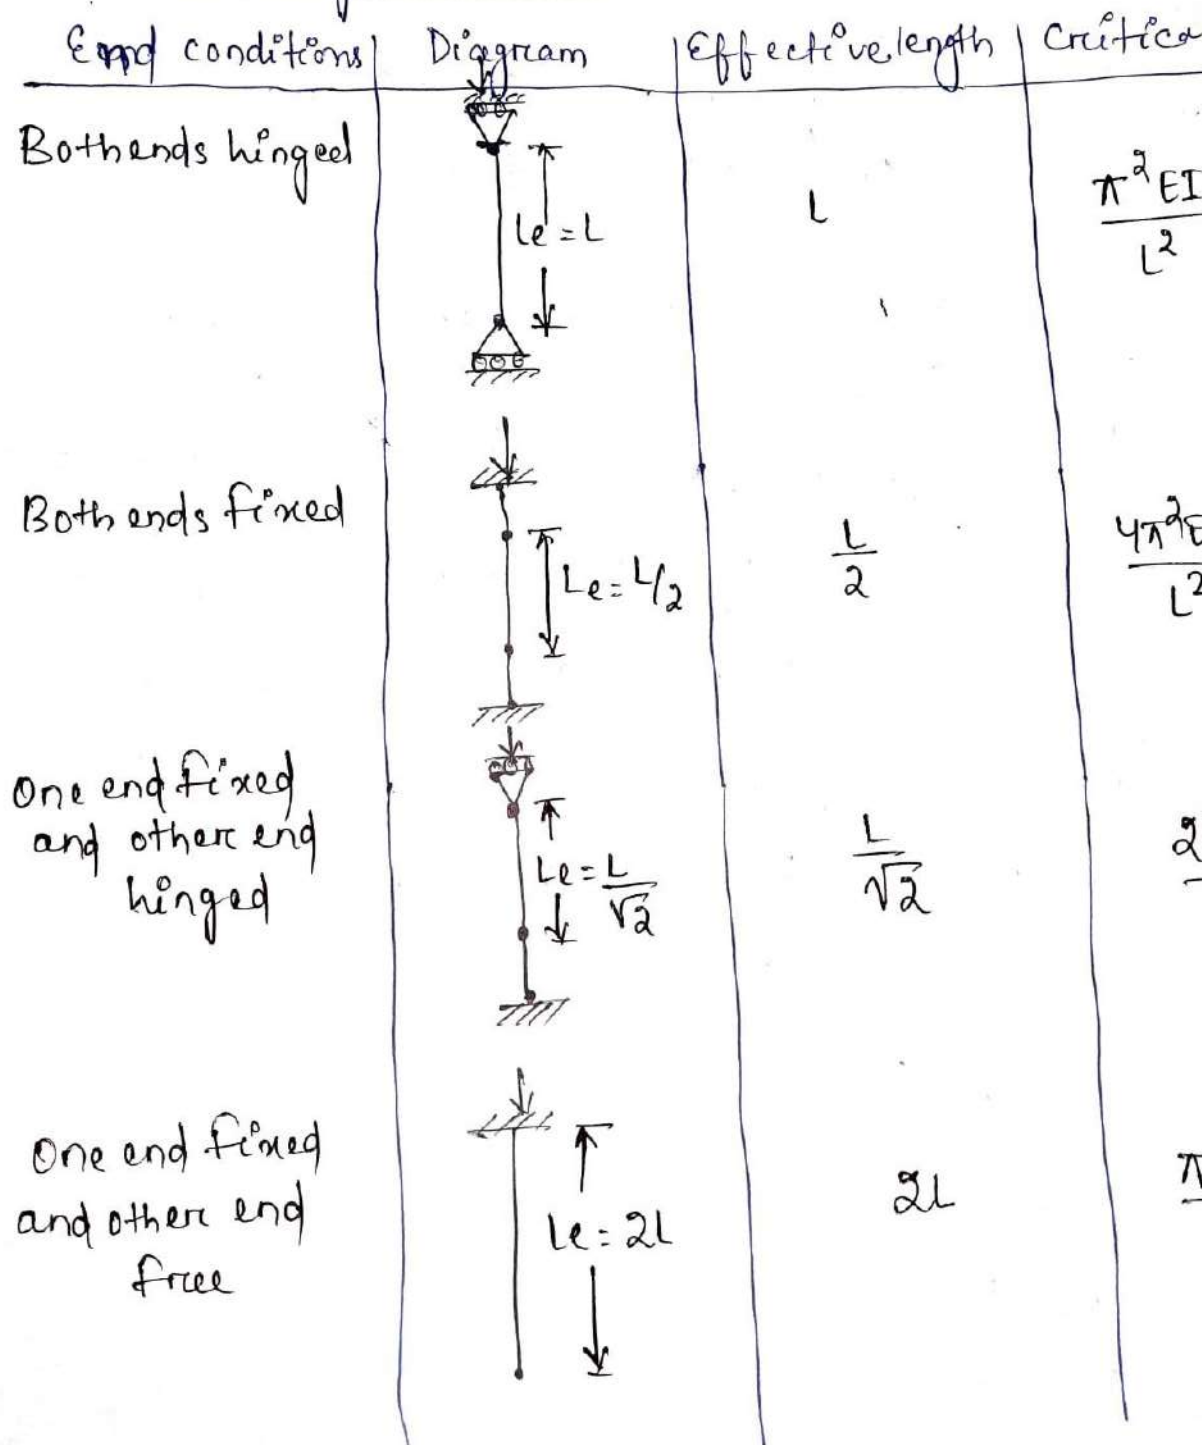 End conditions
Diagram
Effective length
Critica
Both ends hinged
Le = L
L
π²EI
L²
Both ends fixed
Le = L/2
L
2
4π²E
L²
One end fixed
and other end
hinged
Le = L
√2
L
√2
2
One end fixed
and other end
free
Le = 2L
2L
π